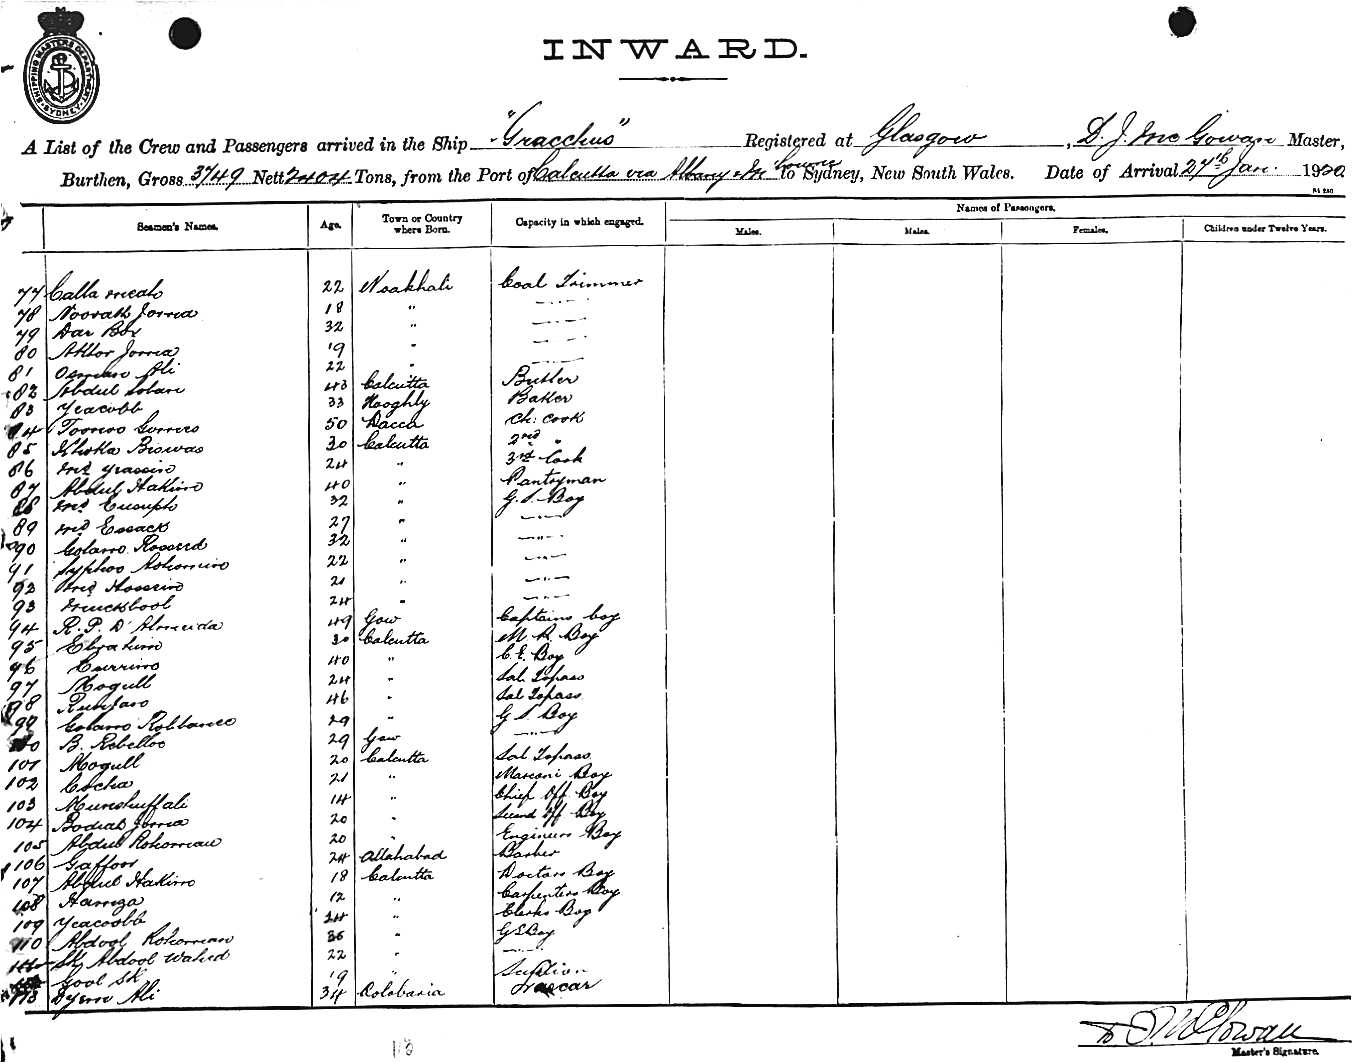 SHIPPING MASTERS DEPARTMENT SYDNEY
INWARD.
A List of the Crew and Passengers arrived in the Ship "Gracchus" Registered at Glasgow, D. J. Mc Gowan Master,
Burthen, Gross 3749 Nett 2404 Tons, from the Port of Calcutta via Albany to Sydney, New South Wales. Date of Arrival 27th Jan. 1920
Names of Passengers.
Seamen's Names. Age. Town or Country where Born. Capacity in which engaged. Males. Males. Females. Children under Twelve Years.
77 Calla meah 22 Noakhali Coal Trimmer
78 Noorah Jorma 18 " —
79 Dar Box 32 " —
80 Aktor Jorma 19 " —
81 Osman Ali 22 " —
82 Abdul Soban 43 Calcutta Butler
83 Yeacobb 33 Hooghly Baker
84 50 Dacca Ch: Cook
85 Biswas 30 Calcutta 2nd "
86 Md Yeassin 24 " 3rd Cook
87 Abdul Hakim 40 " Pantryman
88 Md Eusuph 32 " G. S. Boy
89 Md Essack 27 " —
90 Golam 32 " —
91 Rohomim 22 " —
92 Md Hossein 21 " —
93 24 " —
94 R. P. D'Almeida 49 Gow Captains boy
95 Ebrahim 30 Calcutta M. R. Boy
96 Currim 40 " C. E. Boy
97 Mogull 24 " Sal. Topass
98 46 " Sal Topass
99 Golam Robbanee 29 " G S Boy
100 B. Rebelloo 29 Gow —
101 Mogull 20 Calcutta Sal Topass
102 Cocha 21 " Marconi Boy
103 Munshuffali 14 " Chief Off. Boy
104 Jorma 20 " Second Off Boy
105 Abdul Rohoman 20 " Engineers Boy
106 Gaffoor 24 Allahabad Barber
107 Abdul Hakim 18 Calcutta Doctors Boy
108 Hamza 12 " Carpenters Boy
109 Yeacoobb 24 " Clerks Boy
110 Abdool Rohoman 36 " G S Boy
Sk Abdool Wahed 22 " —
Gool Sk 19 "
113 Ali 34 Colabaria Lascar
Master's Signature.
113